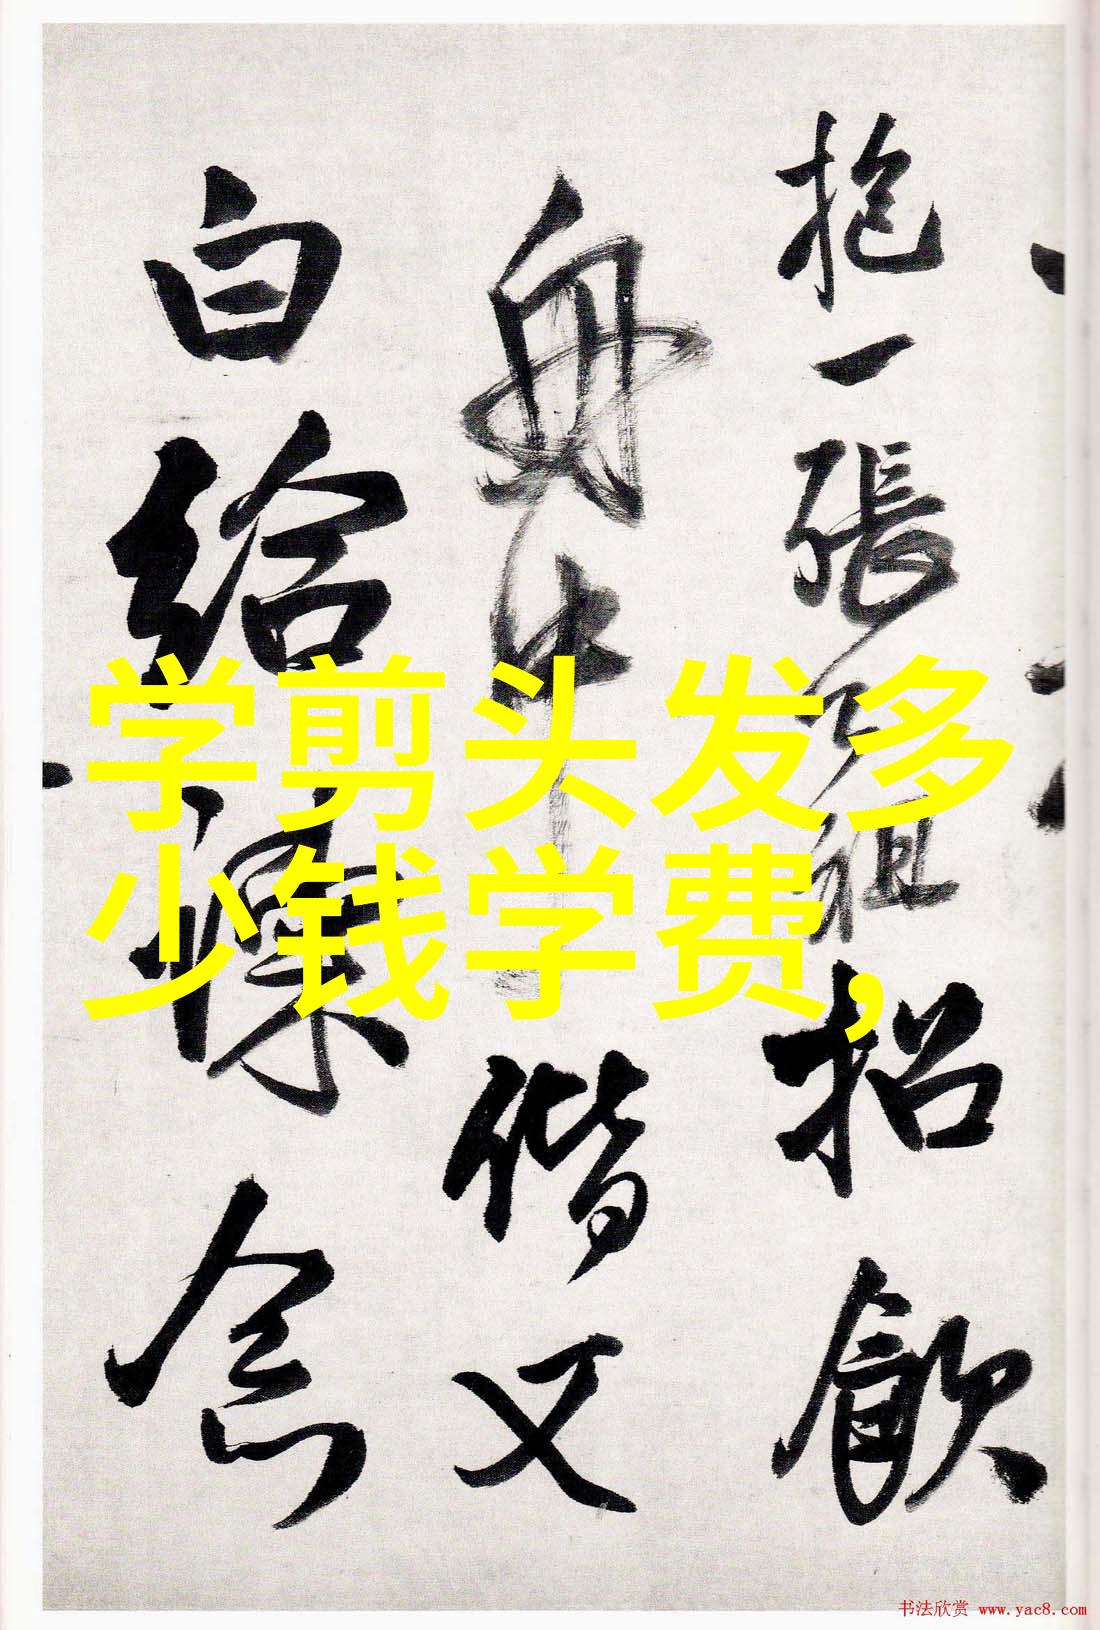 抱一張
祖招飲
舟中
偕又
白給
念
学剪头发多
少钱学费,
书法欣赏 www.yac8.com